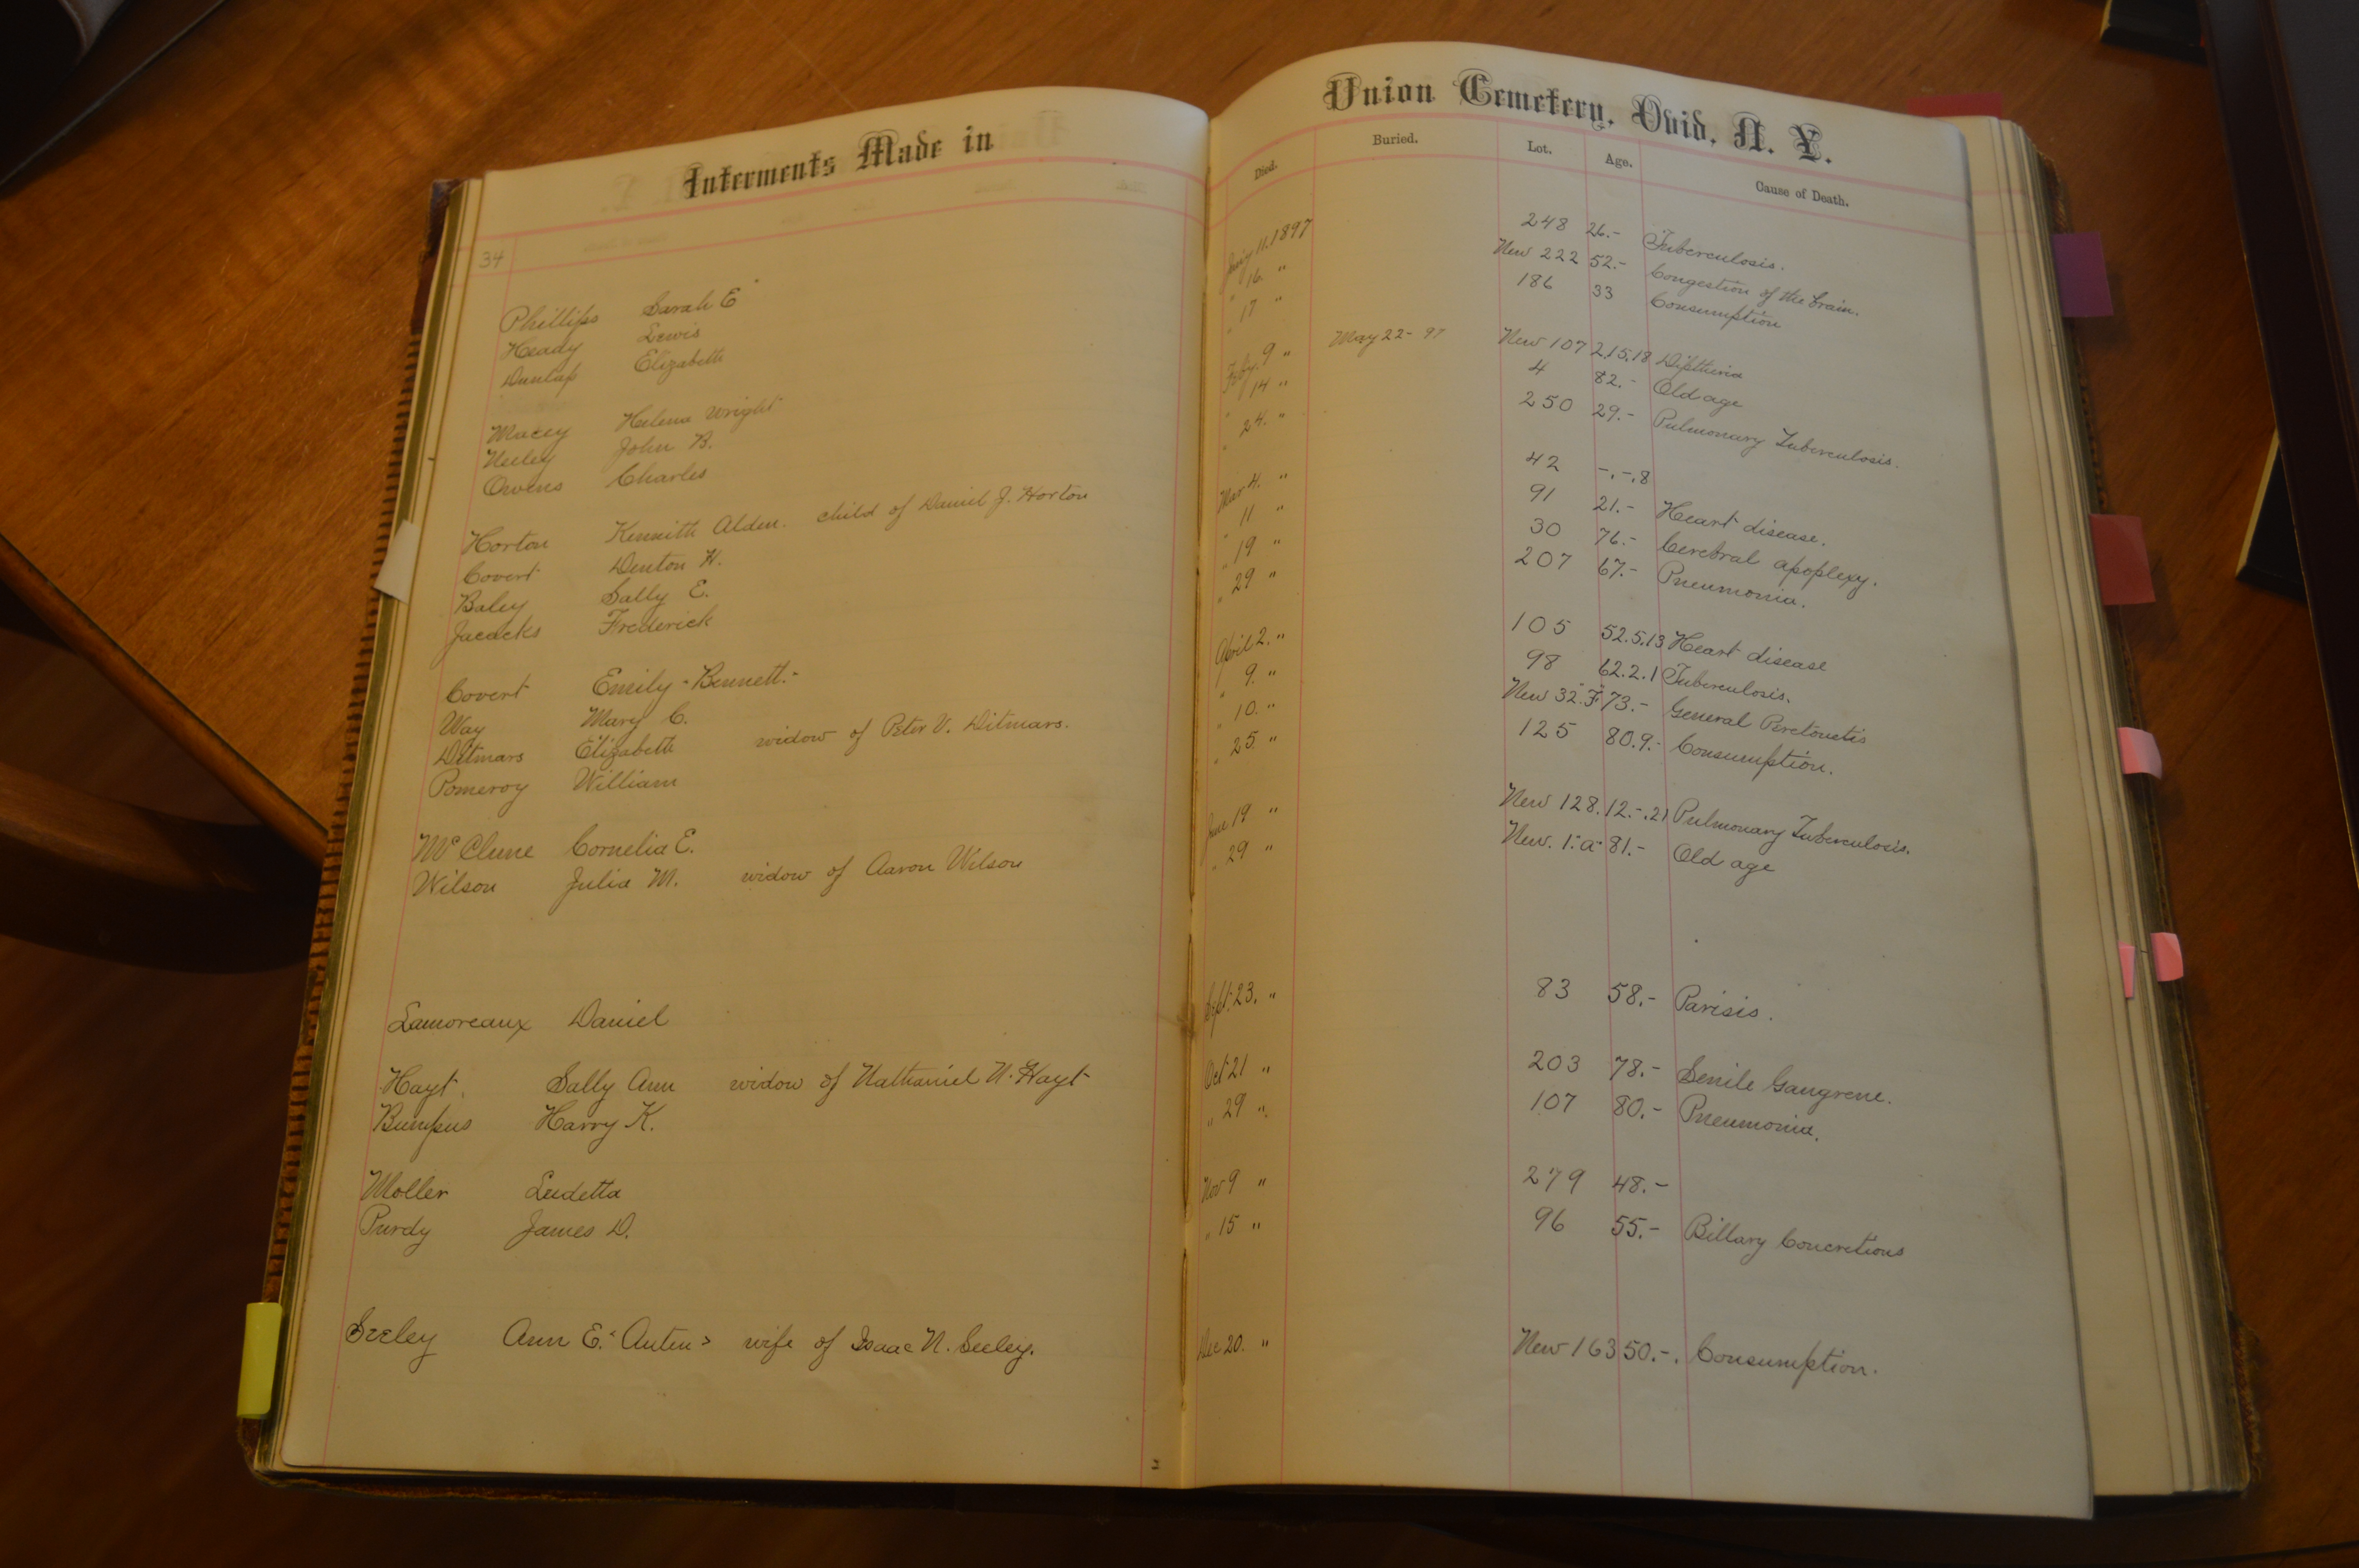 Interments Made in Union Cemetery, Ovid, N. Y.
Died. Buried. Lot. Age. Cause of Death.
34
Phillips Sarah E 11. 1897 248 26.- Tuberculosis.
Heady Lewis " 16. " New 222 52.- Congestion of the brain.
Dunlap Elizabeth " 17 " 186 33 Consumption
Macey Helena Wright Feby. 9 " May 22 - 97 New 107 2.15.18 Diptheria
Neeley John B. " 14 " 4 82.- Old age
Owens Charles " 24. " 250 29.- Pulmonary Tuberculosis.
Horton Kennith Alden. child of Daniel J. Horton Mar 4. " 42 -.-.8
Covert Denton H. " 11 " 91 21.- Heart disease.
Baley Sally E. " 19 " 30 76.- Cerebral apoplexy.
Jacacks Frederick " 29 " 207 67.- Pneumonia.
Covert Emily - Bennett. - April 2. " 105 52.5.13 Heart disease
Way Mary C. " 9. " 98 62.2.1 Tuberculosis.
Ditmars Elizabeth widow of Peter V. Ditmars. " 10. " New 32 "F" 73.- General Peretonetis
Pomeroy William " 25. " 125 80.9.- Consumption.
McClune Cornelia E. June 19 " New 128. 12.-.21 Pulmonary Tuberculosis.
Wilson Julia M. widow of Aaron Wilson " 29 " New. 1 "a" 81.- Old age
Lamoreaux Daniel Sept. 23. " 83 58.- Parisis.
Hayt. Sally Ann widow of Nathaniel N. Hayt Oct 21 " 203 78.- Senile Gangrene.
Bumpus Harry K. " 29 ". 107 80.- Pneumonia.
Moller Ludetta Nov 9 " 279 48.-
Purdy James D. " 15 " 96 55.- Billary Concretions
Seeley Ann E. <Auten> wife of Isaac N. Seeley. Dec 20. " New 163 50.-. Consumption.